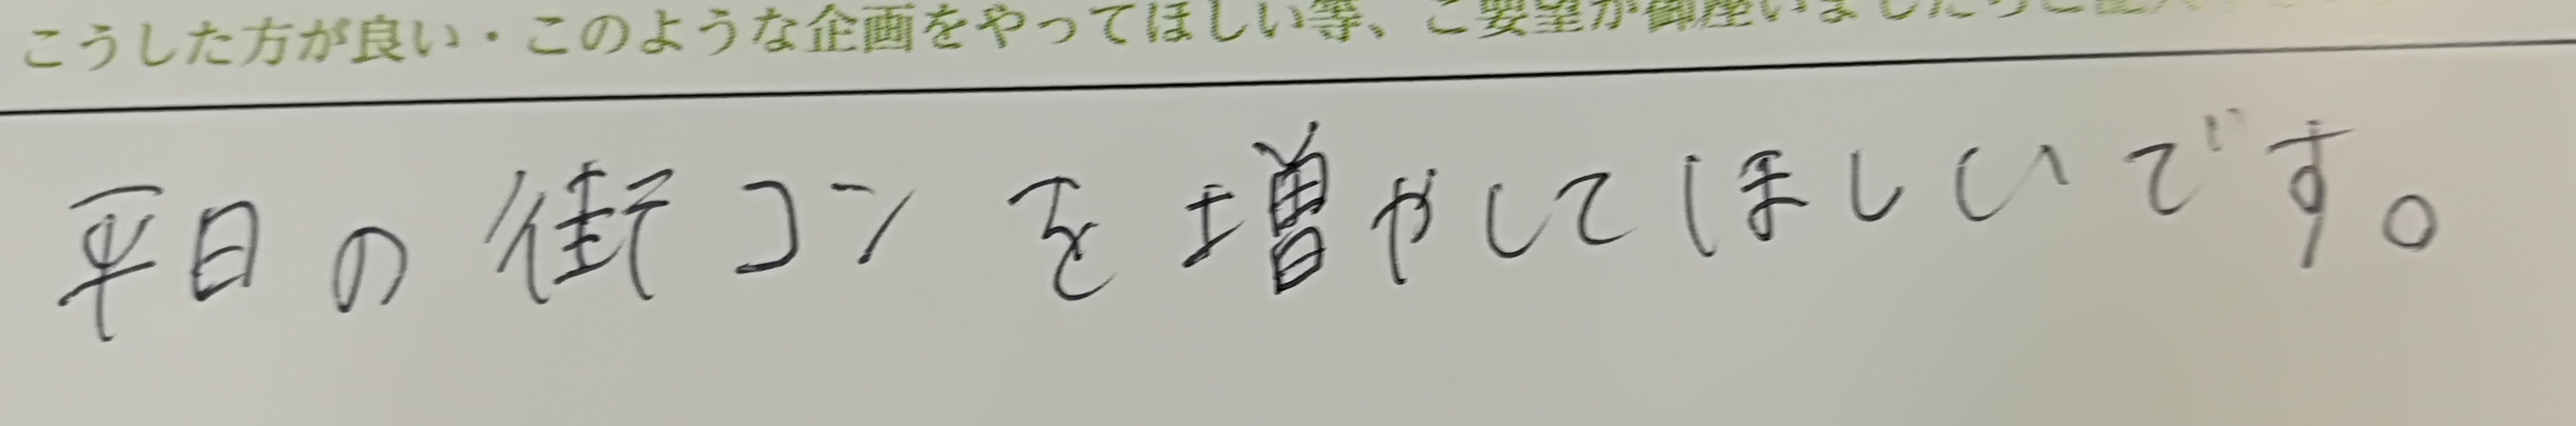 こうした方が良い・このような企画をやってほしい等、ご要望が御座いましたらご記入
平日の街コンを増やしてほしいです。